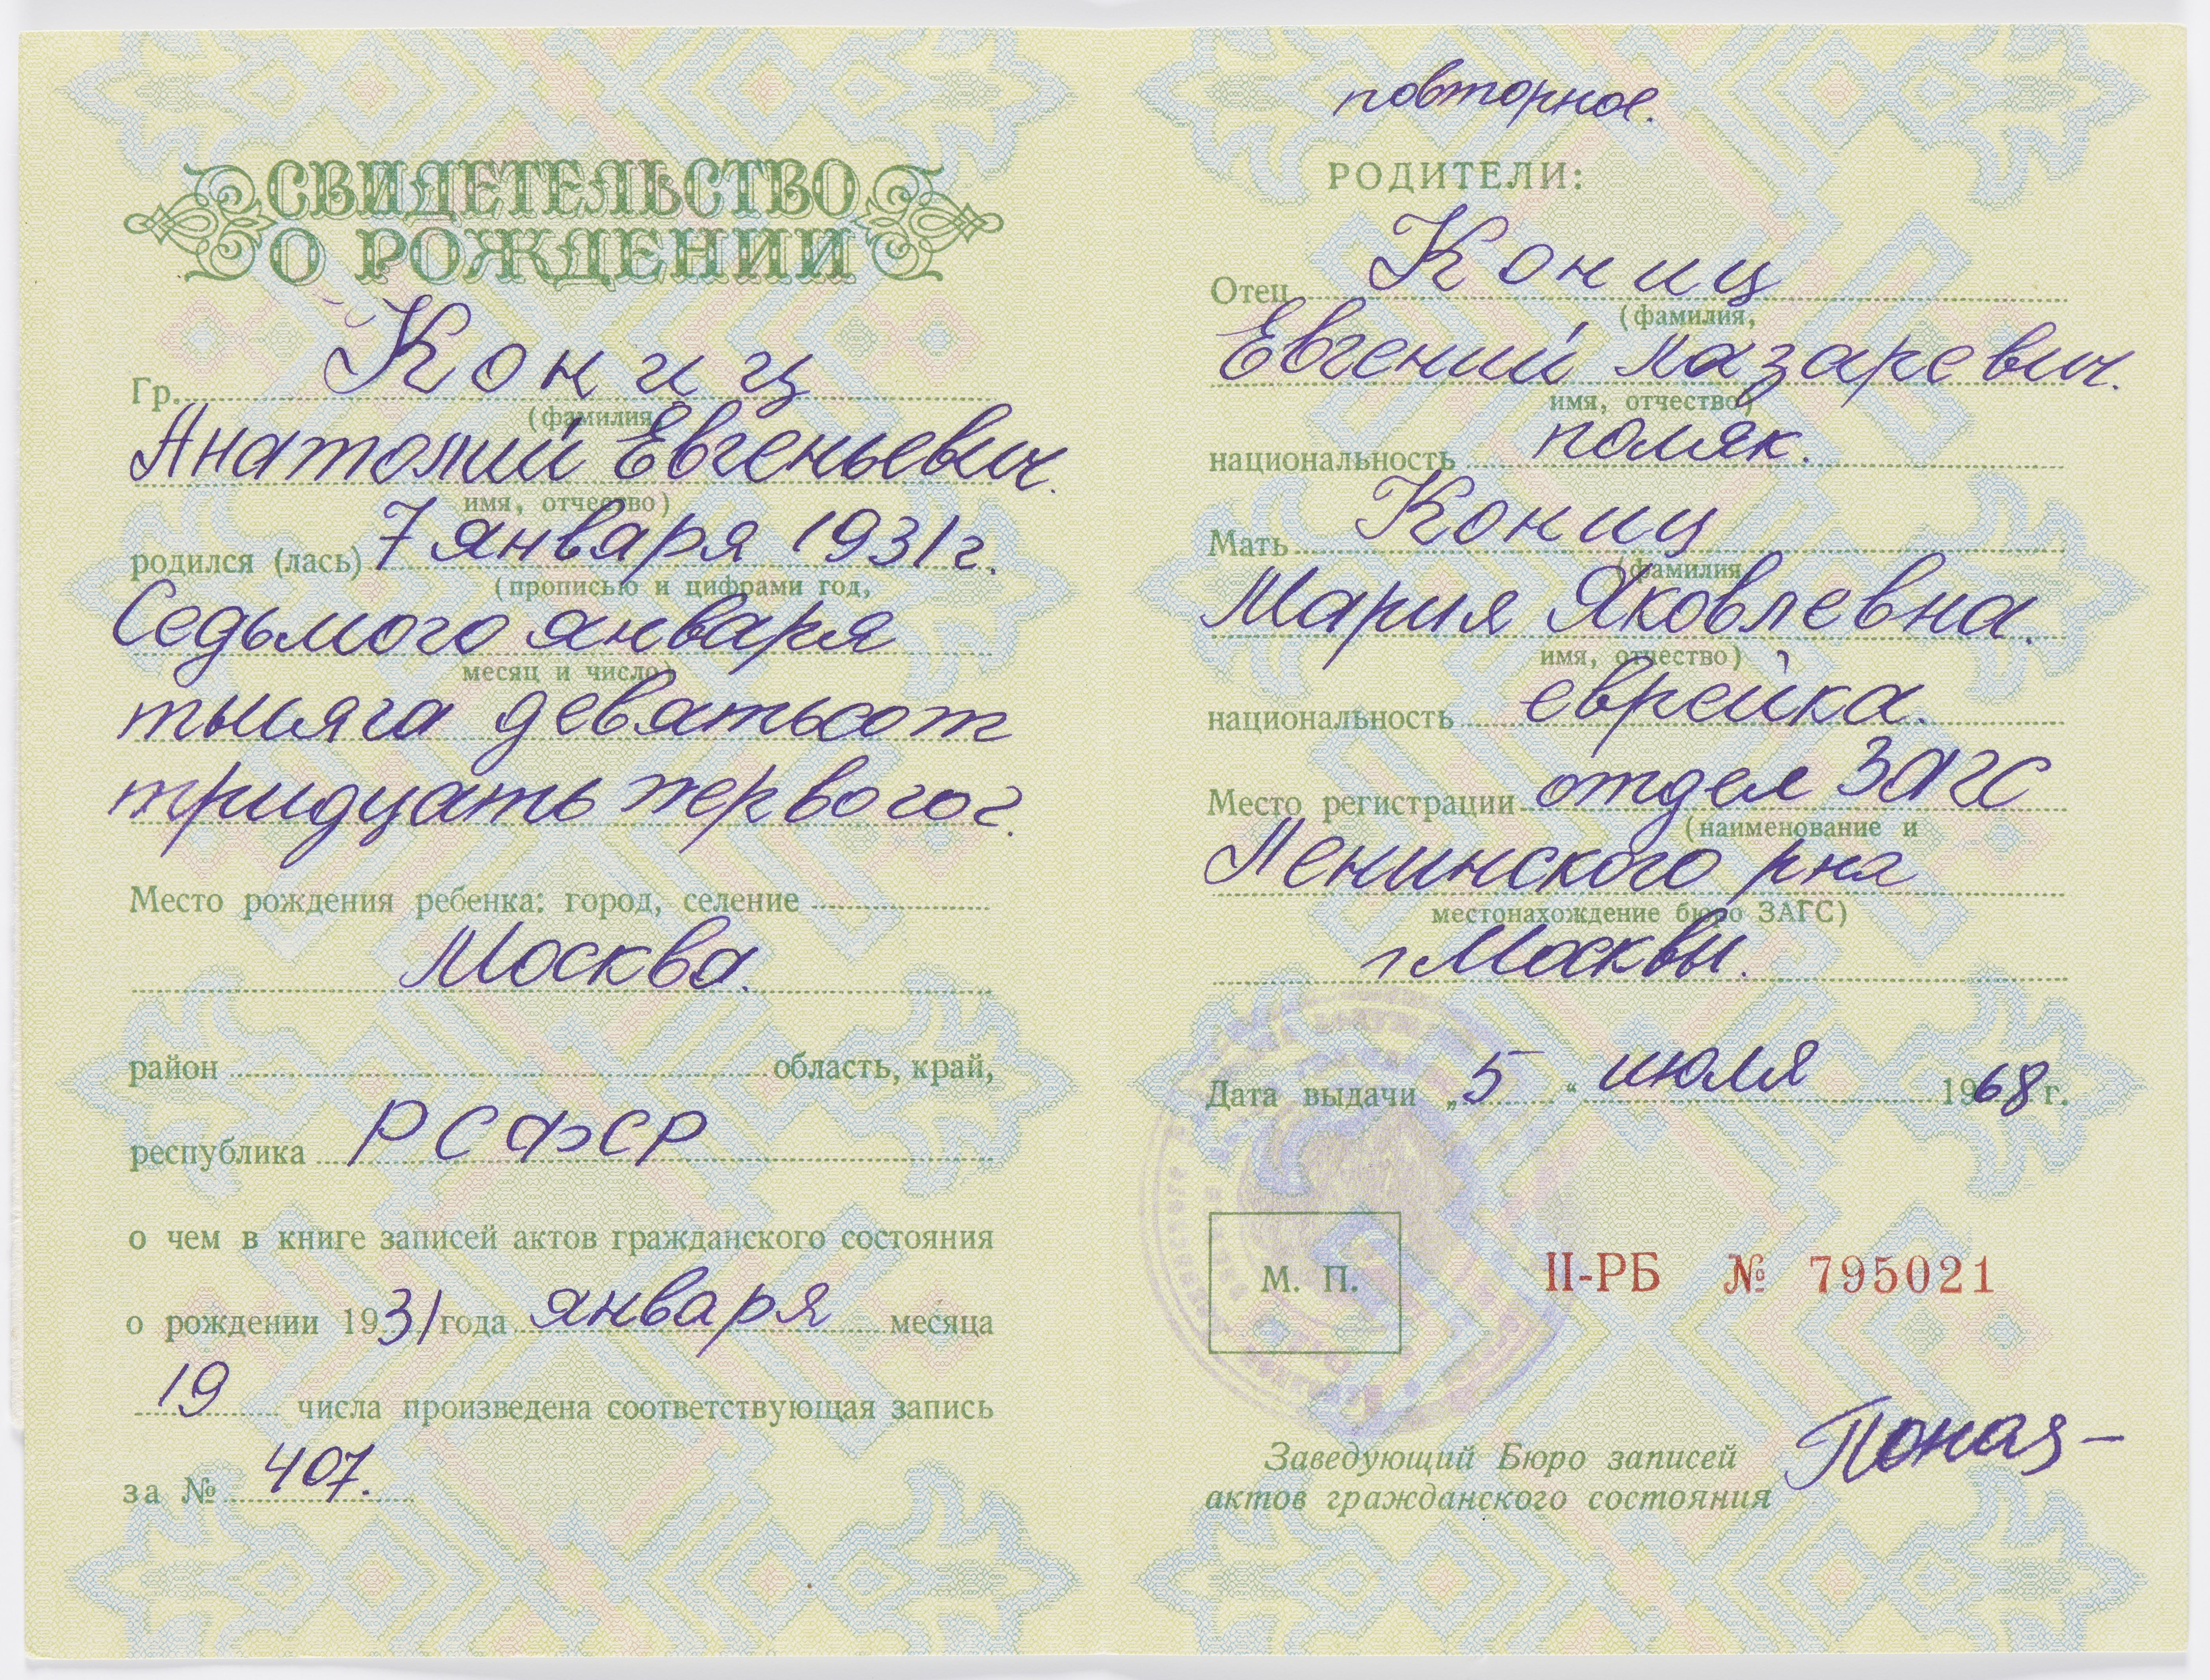 СВИДЕТЕЛЬСТВО
О РОЖДЕНИИ
Гр. Кониц
(фамилия,
Анатолий Евгеньевич.
имя, отчество)
родился (лась) 7 января 1931 г.
(прописью и цифрами год,
Седьмого января
месяц и число)
тысяча девятьсот
тридцать первого г.
Место рождения ребенка: город, селение
Москва.
район область, край,
республика РСФСР
о чем в книге записей актов гражданского состояния
о рождении 1931 года января месяца
19 числа произведена соответствующая запись
за № 407.
повторное.
РОДИТЕЛИ:
Отец Кониц
(фамилия,
Евгений Лазаревич.
имя, отчество)
национальность поляк.
Мать Кониц
(фамилия,
Мария Яковлевна.
имя, отчество)
национальность еврейка.
Место регистрации отдел ЗАГС
(наименование и
Ленинского р-на
местонахождение бюро ЗАГС)
г Москвы.
Дата выдачи „5“ июля 1968 г.
М. П.
II-РБ № 795021
Заведующий Бюро записей
актов гражданского состояния